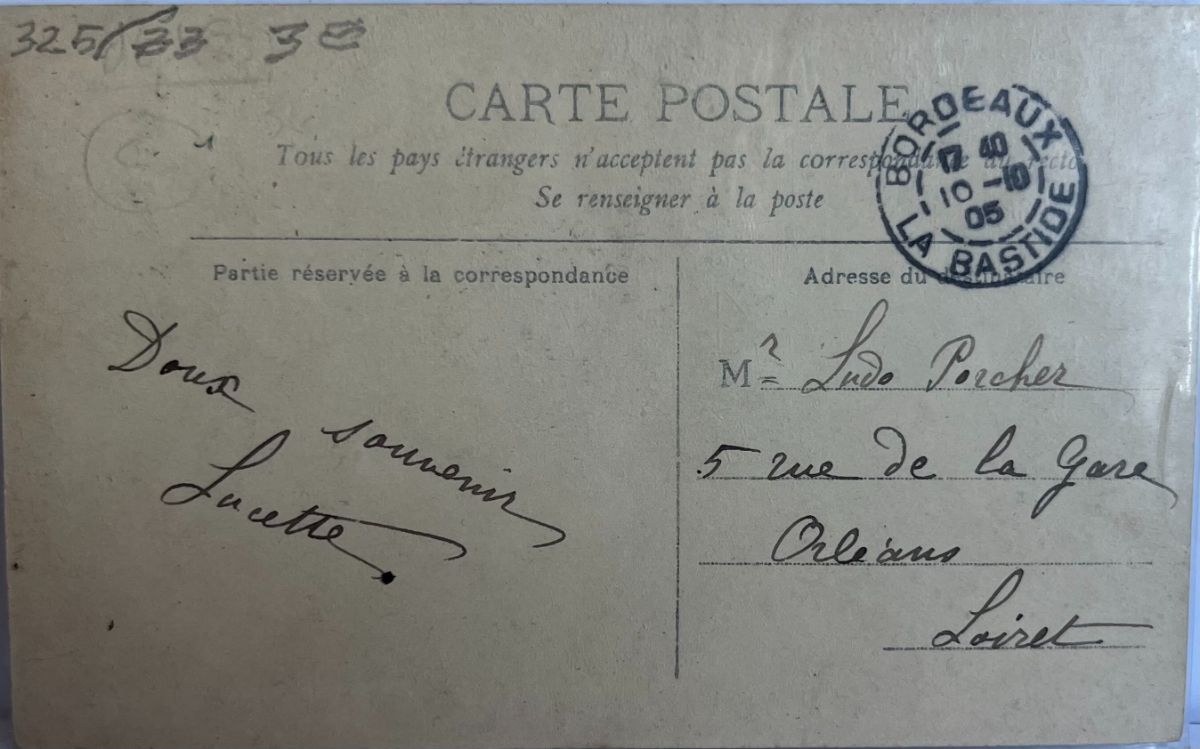 325/33 3€
CARTE POSTALE
Tous les pays étrangers n'acceptent pas la correspondance au recto
Se renseigner à la poste
BORDEAUX
17 40
10 -10
05
LA BASTIDE
Partie réservée à la correspondance
Doux souvenir
Lucette
Adresse du destinataire
Mr Ludo Porcher
5 rue de la Gare
Orléans
Loiret